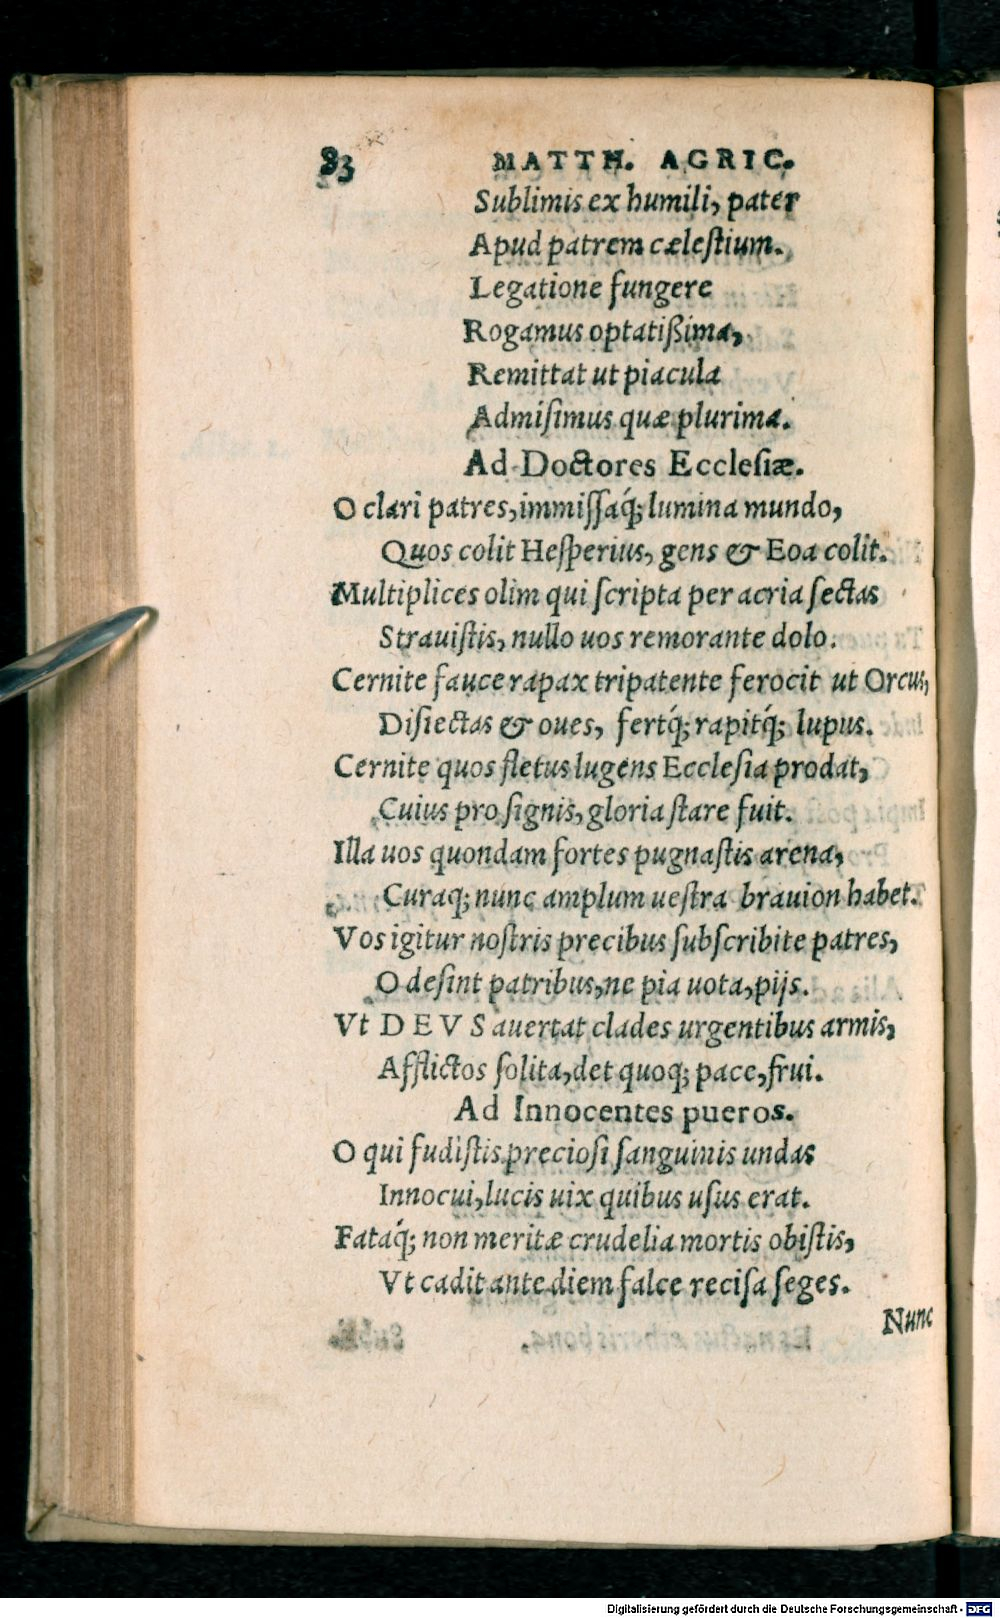 83 MATTH. AGRIC.
Sublimis ex humili, pater
Apud patrem cælestium.
Legatione fungere
Rogamus optatißima,
Remittat ut piacula
Admiſimus quæ plurima.
Ad Doctores Eccleſiæ.
O clari patres, immiſſaq́; lumina mundo,
Quos colit Heſperius, gens & Eoa colit.
Multiplices olim qui ſcripta per acria ſectas
Strauiſtis, nullo uos remorante dolo.
Cernite fauce rapax tripatente ferocit ut Orcus,
Diſiectas & oues, fertq́; rapitq́; lupus.
Cernite quos fletus lugens Eccleſia prodat,
Cuius pro ſignis, gloria ſtare fuit.
Illa uos quondam fortes pugnaſtis arena,
Curaq; nunc amplum ueſtra brauion habet.
Vos igitur noſtris precibus ſubſcribite patres,
O deſint patribus, ne pia uota, pijs.
Vt DEVS auertat clades urgentibus armis,
Afflictos ſolita, det quoq; pace, frui.
Ad Innocentes pueros.
O qui fudiſtis precioſi ſanguinis undas
Innocui, lucis uix quibus uſus erat.
Fataq́; non meritæ crudelia mortis obiſtis,
Vt cadit ante diem falce reciſa ſeges.
Nunc
Digitalisierung gefördert durch die Deutsche Forschungsgemeinschaft - DFG